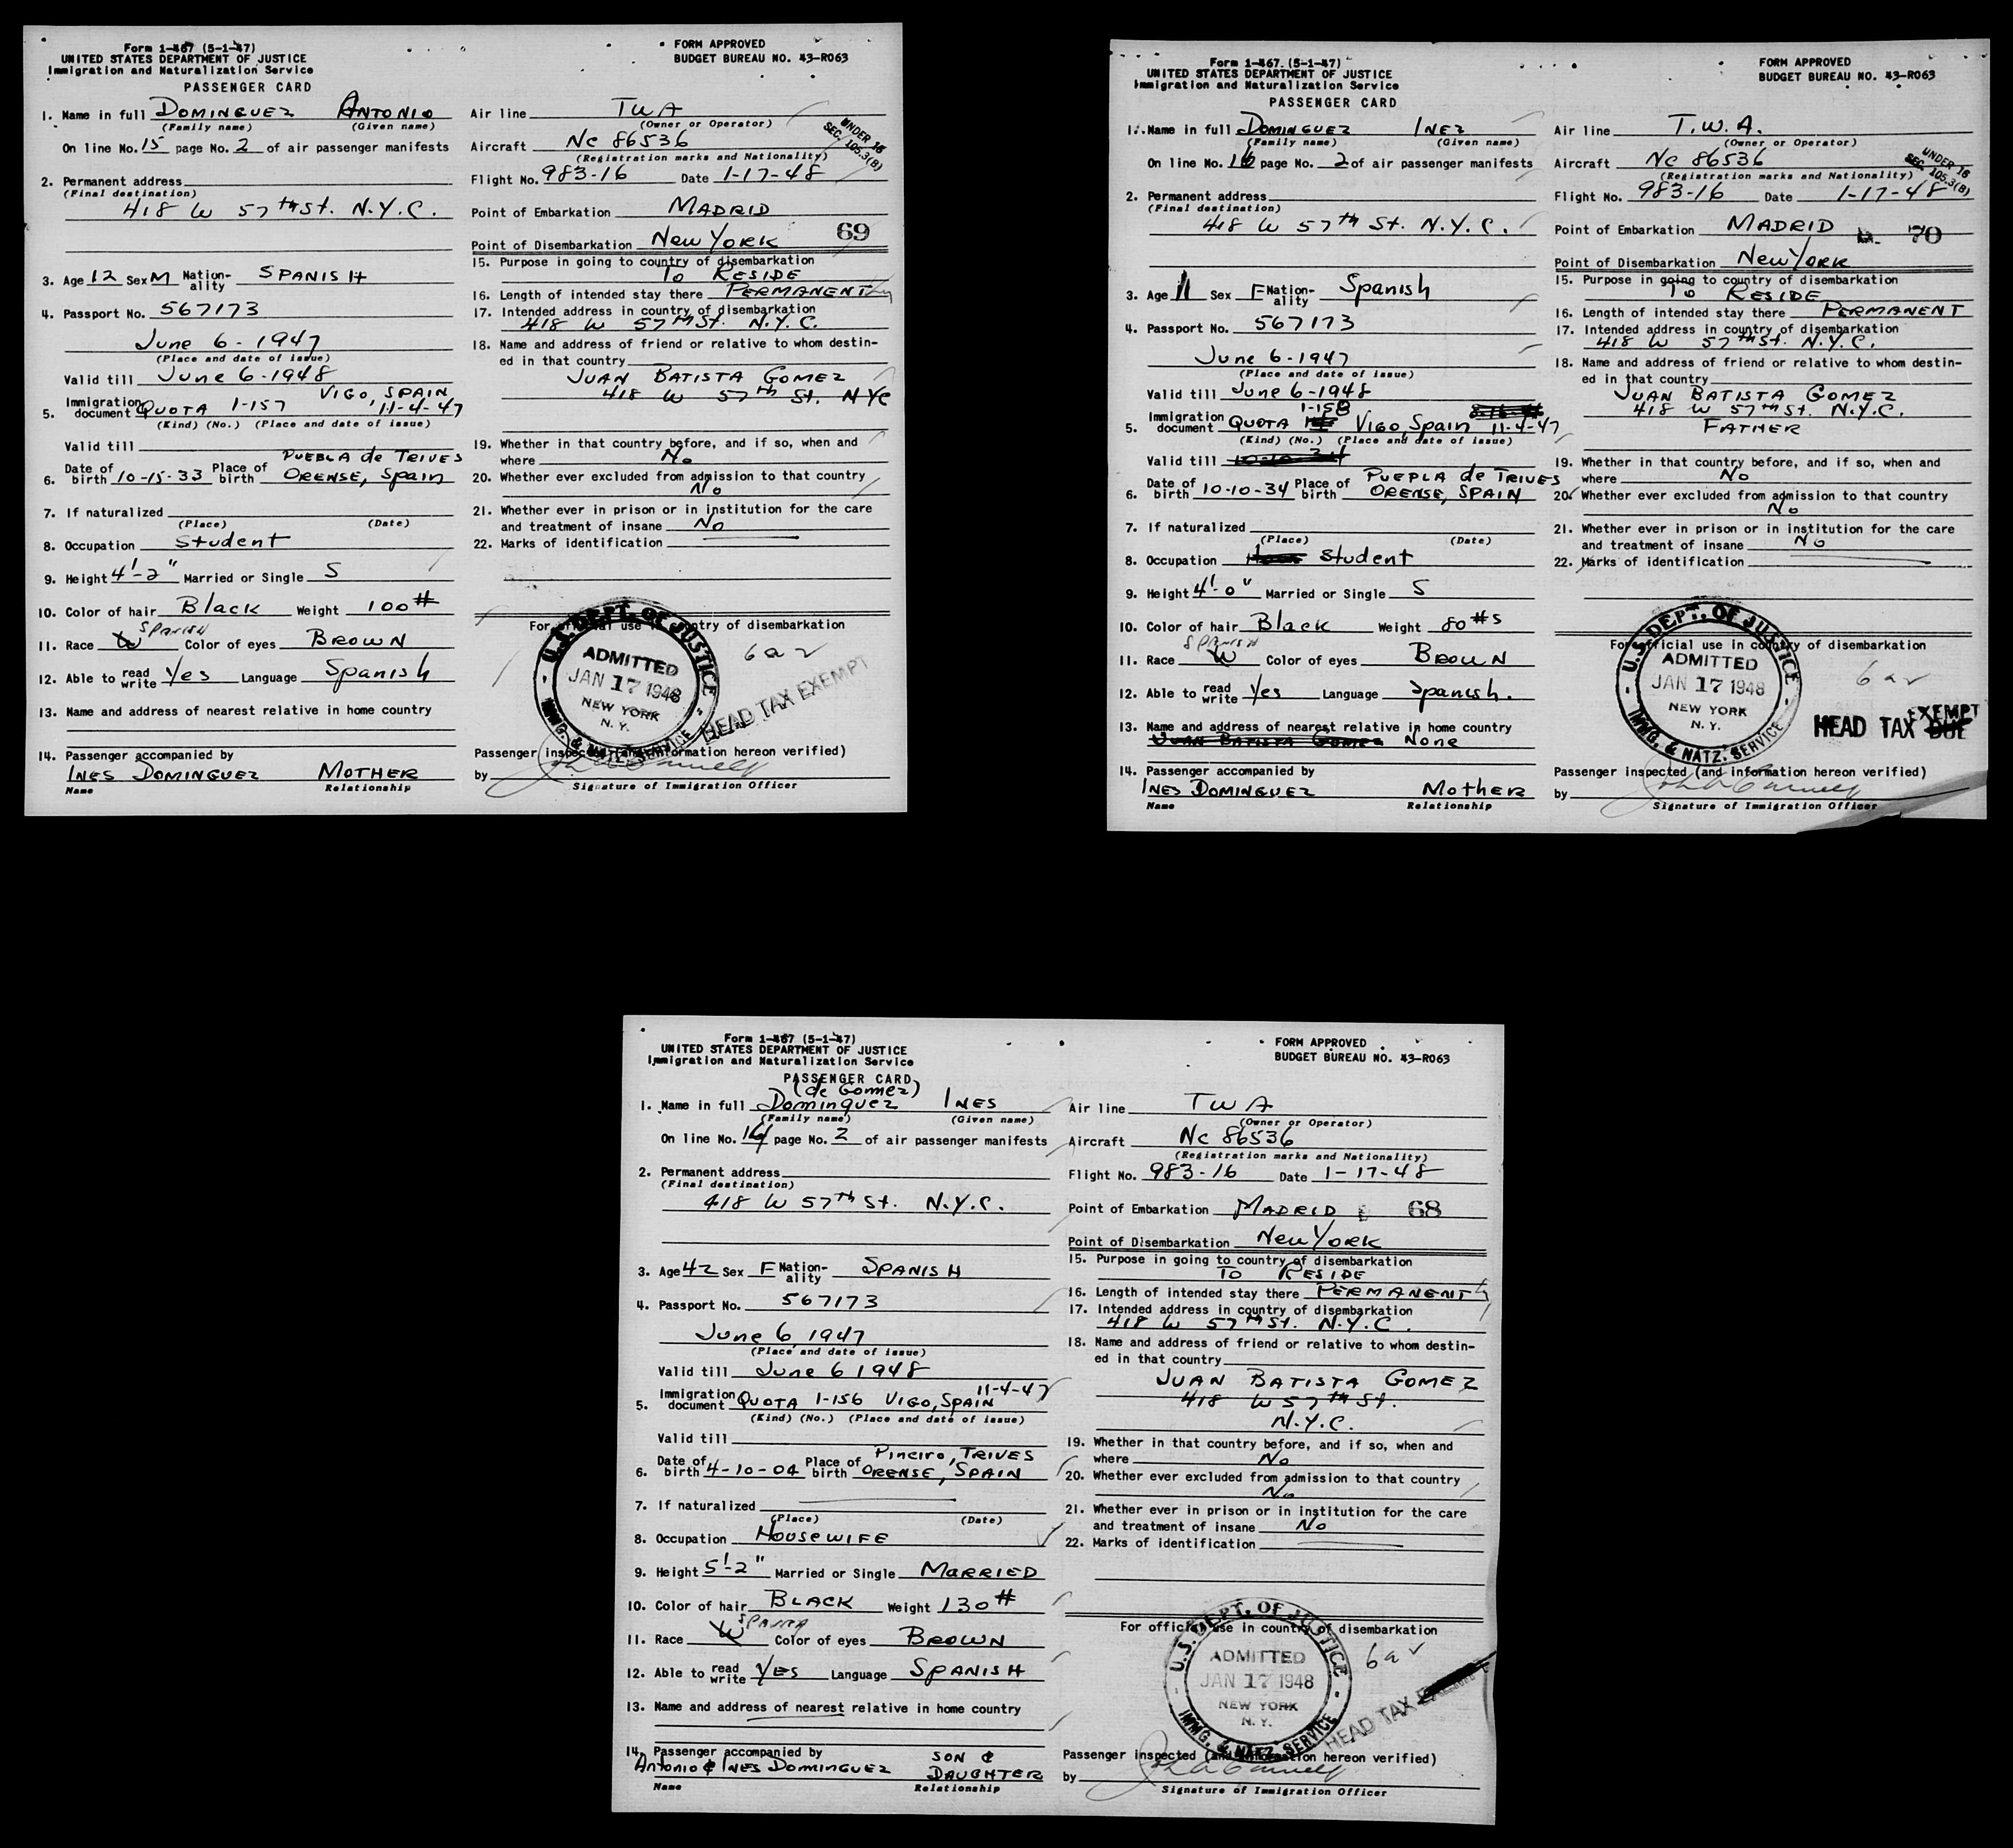 Form 1-467 (5-1-47)
UNITED STATES DEPARTMENT OF JUSTICE
Immigration and Naturalization Service
PASSENGER CARD
1. Name in full DOMINGUEZ ANTONIO
(Family name) (Given name)
On line No. 15 page No. 2 of air passenger manifests
2. Permanent address
(Final destination)
418 W 57th St. N.Y.C.
3. Age 12 Sex M Nationality SPANISH
4. Passport No. 567173
June 6-1947
(Place and date of issue)
Valid till June 6-1948
VIGO, SPAIN
5. Immigration document QUOTA 1-157 11-4-47
(Kind) (No.) (Place and date of issue)
Valid till
PUEBLA de TRIVES
6. Date of birth 10-15-33 Place of birth ORENSE, Spain
7. If naturalized
(Place) (Date)
8. Occupation Student
9. Height 4'-2" Married or Single S
10. Color of hair Black Weight 100#
SPANISH
11. Race W Color of eyes BROWN
12. Able to read write Yes Language Spanish
13. Name and address of nearest relative in home country
14. Passenger accompanied by
INES DOMINGUEZ MOTHER
Name Relationship
FORM APPROVED
BUDGET BUREAU NO. 43-R063
Air line TWA
(Owner or Operator)
UNDER 16
SEC. 105.3(B)
Aircraft NC 86536
(Registration marks and Nationality)
Flight No. 983-16 Date 1-17-48
Point of Embarkation MADRID
69
Point of Disembarkation New YORK
15. Purpose in going to country of disembarkation
To RESIDE
16. Length of intended stay there PERMANENT
17. Intended address in country of disembarkation
418 W 57th St. N.Y.C.
18. Name and address of friend or relative to whom destin-
ed in that country
JUAN BATISTA GOMEZ
418 W 57th St. NYC
19. Whether in that country before, and if so, when and
where No
20. Whether ever excluded from admission to that country
No
21. Whether ever in prison or in institution for the care
and treatment of insane No
22. Marks of identification
For official use in country of disembarkation
U.S. DEPT. OF JUSTICE
ADMITTED
JAN 17 1948
NEW YORK
N. Y.
IMMG. & NATZ. SERVICE
HEAD TAX EXEMPT
Passenger inspected (and information hereon verified)
by
Signature of Immigration Officer
Form 1-467 (5-1-47)
UNITED STATES DEPARTMENT OF JUSTICE
Immigration and Naturalization Service
PASSENGER CARD
1. Name in full DOMINGUEZ INEZ
(Family name) (Given name)
On line No. 16 page No. 2 of air passenger manifests
2. Permanent address
(Final destination)
418 W 57th St. N.Y.C.
3. Age 11 Sex F Nationality Spanish
4. Passport No. 567173
June 6-1947
(Place and date of issue)
Valid till June 6-1948
1-158
5. Immigration document QUOTA Vigo, Spain 11-4-47
(Kind) (No.) (Place and date of issue)
Valid till 10-10-34
PUEPLA de TRIVES
6. Date of birth 10-10-34 Place of birth ORENSE, SPAIN
7. If naturalized
(Place) (Date)
8. Occupation Student
9. Height 4'-0" Married or Single S
10. Color of hair Black Weight 80#s
SPANISH
11. Race W Color of eyes BROWN
12. Able to read write Yes Language Spanish.
13. Name and address of nearest relative in home country
JUAN BATISTA GOMEZ None
14. Passenger accompanied by
INES DOMINGUEZ MOTHER
Name Relationship
FORM APPROVED
BUDGET BUREAU NO. 43-R063
Air line T.W.A.
(Owner or Operator)
UNDER 16
SEC. 105.3(B)
Aircraft NC 86536
(Registration marks and Nationality)
Flight No. 983-16 Date 1-17-48
Point of Embarkation MADRID
70
Point of Disembarkation New YORK
15. Purpose in going to country of disembarkation
To RESIDE
16. Length of intended stay there PERMANENT
17. Intended address in country of disembarkation
418 W 57th St. N.Y.C.
18. Name and address of friend or relative to whom destin-
ed in that country
JUAN BATISTA GOMEZ
418 W 57th St. N.Y.C.
FATHER
19. Whether in that country before, and if so, when and
where No
20. Whether ever excluded from admission to that country
No
21. Whether ever in prison or in institution for the care
and treatment of insane No
22. Marks of identification
For official use in country of disembarkation
U.S. DEPT. OF JUSTICE
ADMITTED
JAN 17 1948
NEW YORK
N. Y.
IMMG. & NATZ. SERVICE
EXEMPT
HEAD TAX DUE
Passenger inspected (and information hereon verified)
by
Signature of Immigration Officer
Form 1-467 (5-1-47)
UNITED STATES DEPARTMENT OF JUSTICE
Immigration and Naturalization Service
PASSENGER CARD
(de Gomez)
1. Name in full Dominguez INES
(Family name) (Given name)
On line No. 14 page No. 2 of air passenger manifests
2. Permanent address
(Final destination)
418 W 57th St. N.Y.C.
3. Age 42 Sex F Nationality SPANISH
4. Passport No. 567173
June 6 1947
(Place and date of issue)
Valid till June 6 1948
11-4-47
5. Immigration document QUOTA 1-156 VIGO, SPAIN
(Kind) (No.) (Place and date of issue)
Valid till
Pineiro, TRIVES
6. Date of birth 4-10-04 Place of birth ORENSE, SPAIN
7. If naturalized
(Place) (Date)
8. Occupation HOUSEWIFE
9. Height 5'-2" Married or Single MARRIED
10. Color of hair BLACK Weight 130#
11. Race W Color of eyes BROWN
12. Able to read write YES Language SPANISH
13. Name and address of nearest relative in home country
14. Passenger accompanied by SON &
Antonio & INES DOMINGUEZ DAUGHTER
Name Relationship
FORM APPROVED
BUDGET BUREAU NO. 43-R063
Air line TWA
(Owner or Operator)
Aircraft NC 86536
(Registration marks and Nationality)
Flight No. 983-16 Date 1-17-48
Point of Embarkation MADRID 68
Point of Disembarkation New YORK
15. Purpose in going to country of disembarkation
To RESIDE
16. Length of intended stay there PERMANENT
17. Intended address in country of disembarkation
418 W 57th St. N.Y.C.
18. Name and address of friend or relative to whom destin-
ed in that country
JUAN BATISTA GOMEZ
418 W 57th St.
N.Y.C.
19. Whether in that country before, and if so, when and
where No
20. Whether ever excluded from admission to that country
No
21. Whether ever in prison or in institution for the care
and treatment of insane No
22. Marks of identification
For official use in country of disembarkation
U.S. DEPT. OF JUSTICE
ADMITTED
JAN 17 1948
NEW YORK
N. Y.
IMMG. & NATZ. SERVICE
HEAD TAX
Passenger inspected (and information hereon verified)
by
Signature of Immigration Officer